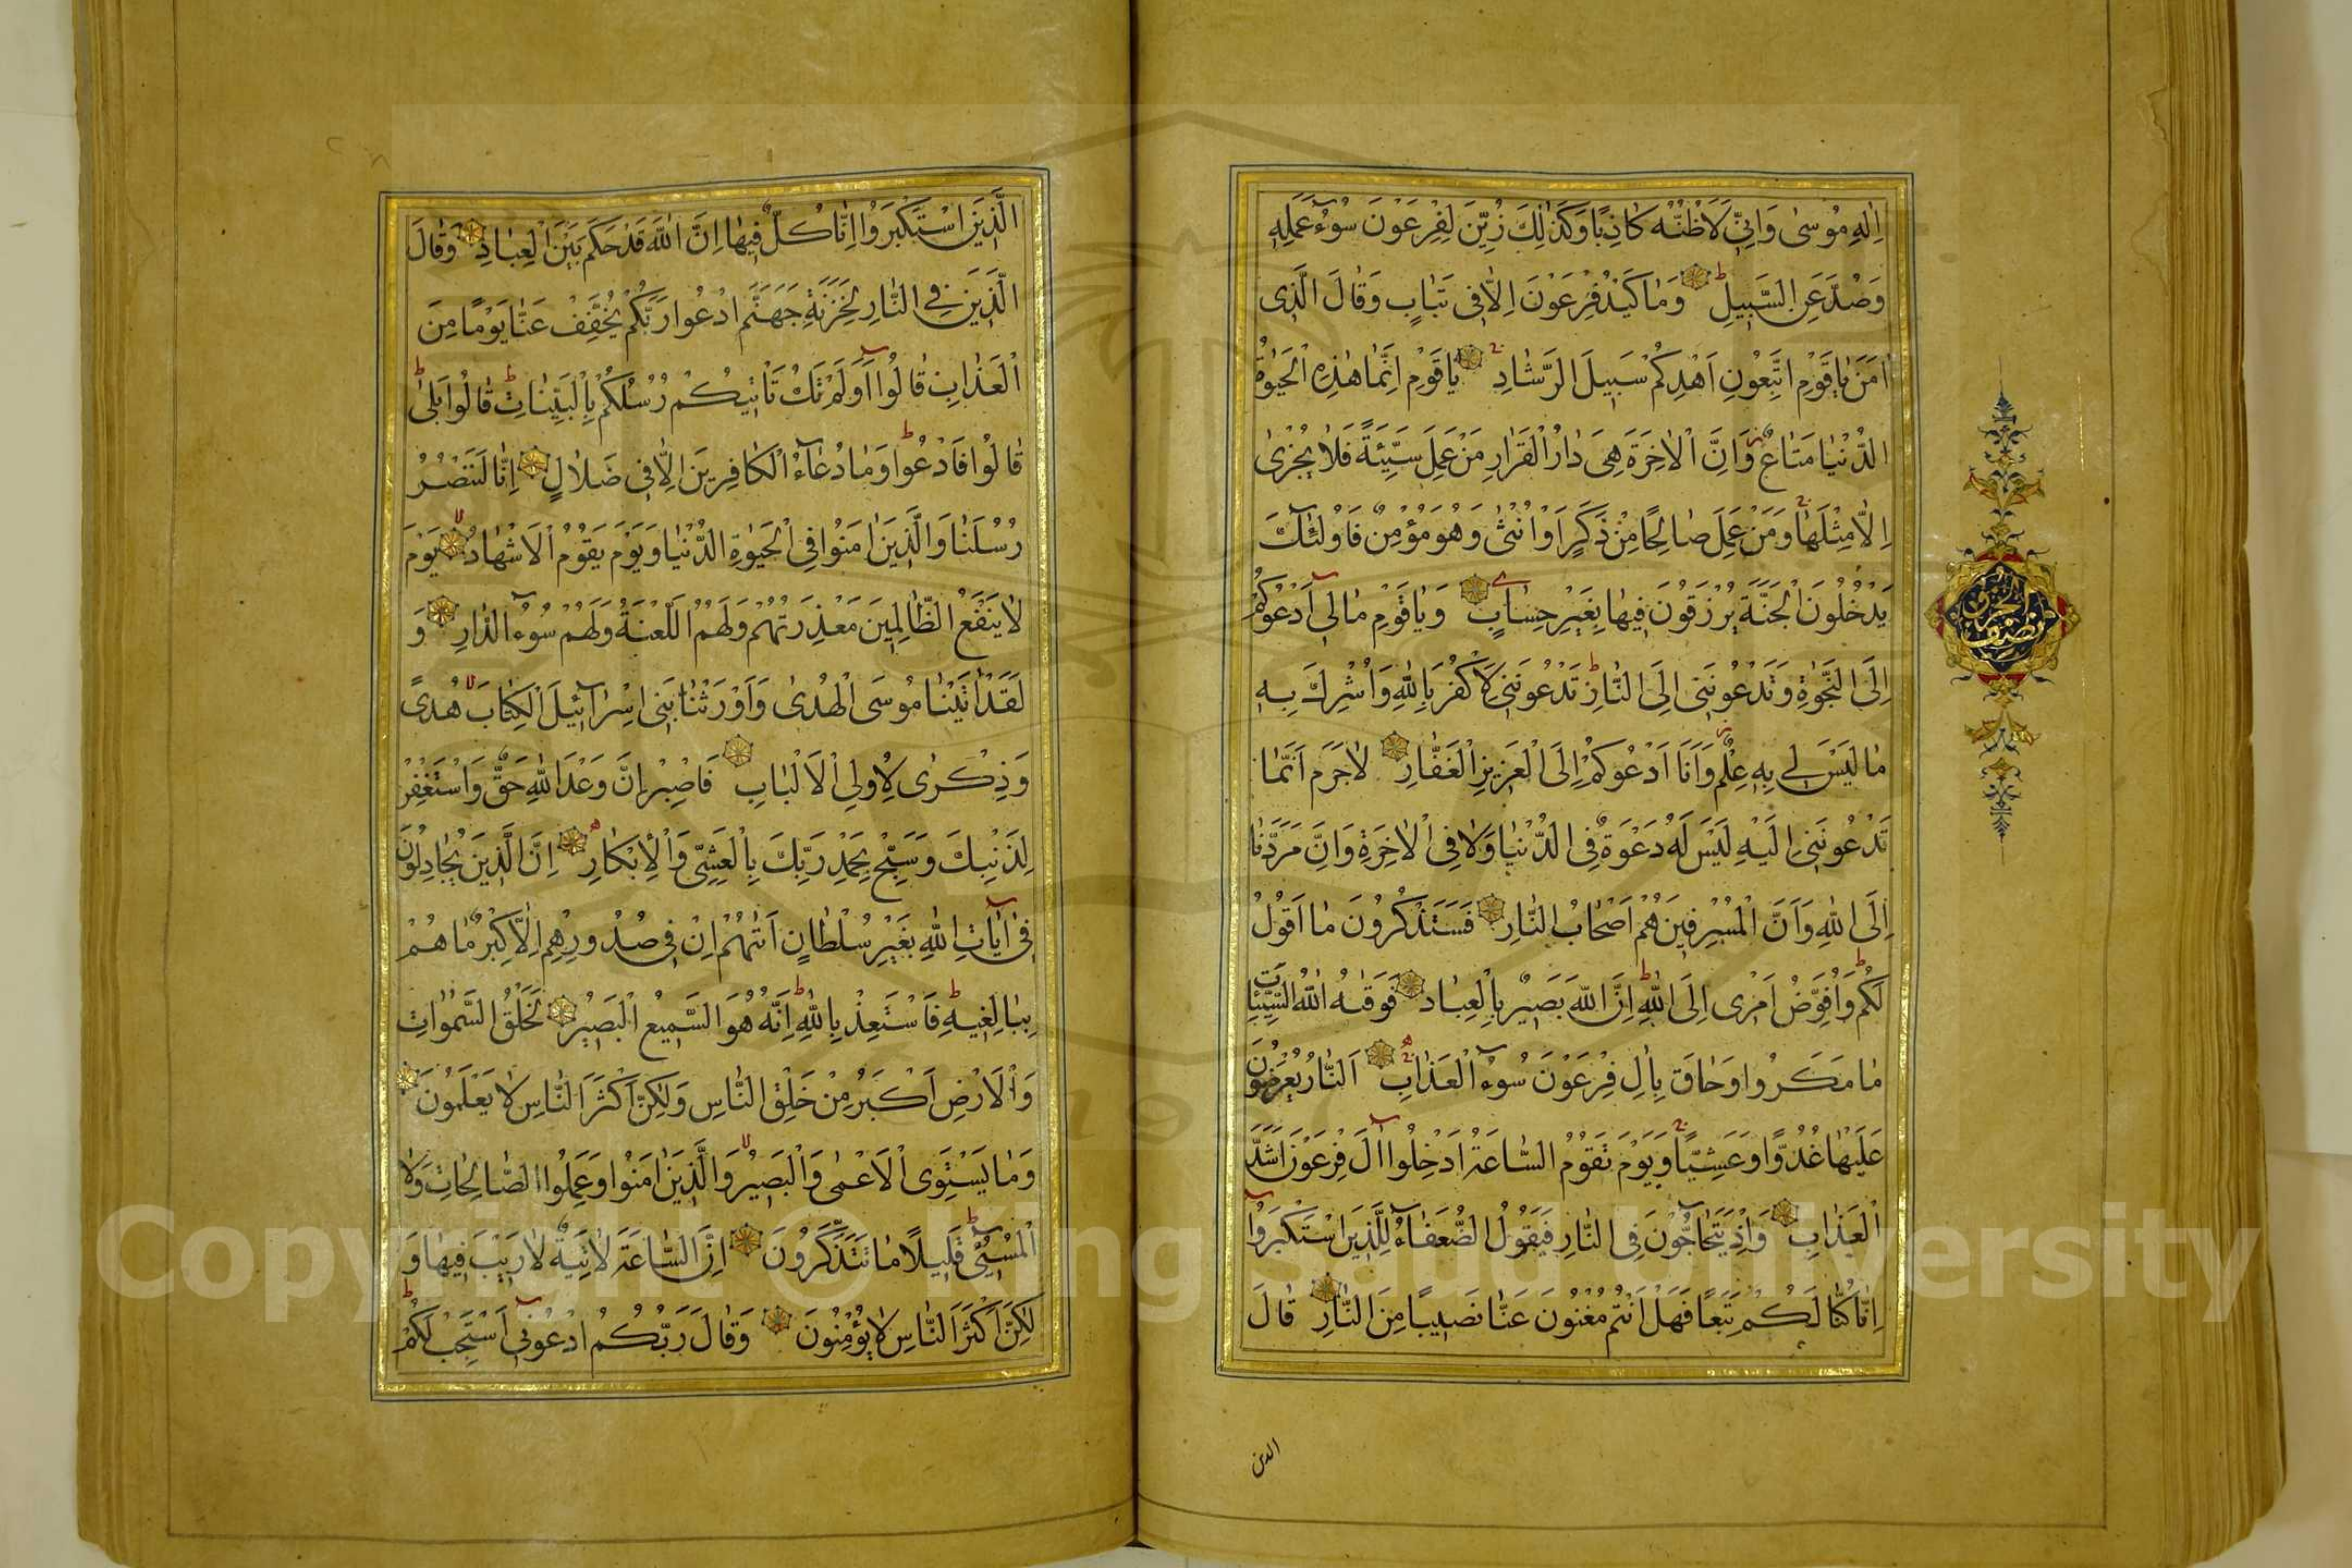 اِلٰهِ مُوسٰى وَاِنِّى لَاَظُنُّهُ كَاذِبًا وَكَذٰلِكَ زُيِّنَ لِفِرْعَوْنَ سُوۤءُ عَمَلِهِ
وَصُدَّ عَنِ السَّبِيلِ وَمَا كَيْدُ فِرْعَوْنَ اِلَّا فِى تَبَابٍ وَقَالَ الَّذِى
اٰمَنَ يَاقَوْمِ اتَّبِعُونِ اَهْدِكُمْ سَبِيلَ الرَّشَادِ يَاقَوْمِ اِنَّمَا هٰذِهِ الْحَيٰوةُ
الدُّنْيَا مَتَاعٌ وَاِنَّ الْاٰخِرَةَ هِىَ دَارُ الْقَرَارِ مَنْ عَمِلَ سَيِّئَةً فَلَا يُجْزٰى
اِلَّا مِثْلَهَا وَمَنْ عَمِلَ صَالِحًا مِنْ ذَكَرٍ اَوْ اُنْثٰى وَهُوَ مُؤْمِنٌ فَاُولٰۤئِكَ
يَدْخُلُونَ الْجَنَّةَ يُرْزَقُونَ فِيهَا بِغَيْرِ حِسَابٍ وَيَاقَوْمِ مَالِىۤ اَدْعُوكُمْ
اِلَى النَّجٰوةِ وَتَدْعُونَنِى اِلَى النَّارِ تَدْعُونَنِى لِاَكْفُرَ بِاللّٰهِ وَاُشْرِكَ بِهِ
مَا لَيْسَ لِى بِهِ عِلْمٌ وَاَنَا اَدْعُوكُمْ اِلَى الْعَزِيزِ الْغَفَّارِ لَا جَرَمَ اَنَّمَا
تَدْعُونَنِى اِلَيْهِ لَيْسَ لَهُ دَعْوَةٌ فِى الدُّنْيَا وَلَا فِى الْاٰخِرَةِ وَاَنَّ مَرَدَّنَا
اِلَى اللّٰهِ وَاَنَّ الْمُسْرِفِينَ هُمْ اَصْحَابُ النَّارِ فَسَتَذْكُرُونَ مَا اَقُولُ
لَكُمْ وَاُفَوِّضُ اَمْرِى اِلَى اللّٰهِ اِنَّ اللّٰهَ بَصِيرٌ بِالْعِبَادِ فَوَقٰيهُ اللّٰهُ سَيِّئَاتِ
مَا مَكَرُوا وَحَاقَ بِاٰلِ فِرْعَوْنَ سُوۤءُ الْعَذَابِ اَلنَّارُ يُعْرَضُونَ
عَلَيْهَا غُدُوًّا وَعَشِيًّا وَيَوْمَ تَقُومُ السَّاعَةُ اَدْخِلُوۤا اٰلَ فِرْعَوْنَ اَشَدَّ
الْعَذَابِ وَاِذْ يَتَحَاۤجُّونَ فِى النَّارِ فَيَقُولُ الضُّعَفَاۤءُ لِلَّذِينَ اسْتَكْبَرُوۤا
اِنَّا كُنَّا لَكُمْ تَبَعًا فَهَلْ اَنْتُمْ مُغْنُونَ عَنَّا نَصِيبًا مِنَ النَّارِ قَالَ
الذين
نصف الحزب
الَّذِينَ اسْتَكْبَرُوا اِنَّا كُلٌّ فِيهَا اِنَّ اللّٰهَ قَدْ حَكَمَ بَيْنَ الْعِبَادِ وَقَالَ
الَّذِينَ فِى النَّارِ لِخَزَنَةِ جَهَنَّمَ ادْعُوا رَبَّكُمْ يُخَفِّفْ عَنَّا يَوْمًا مِنَ
الْعَذَابِ قَالُوۤا اَوَلَمْ تَكُ تَاْتِيكُمْ رُسُلُكُمْ بِالْبَيِّنَاتِ قَالُوا بَلٰى
قَالُوا فَادْعُوا وَمَا دُعَاۤءُ الْكَافِرِينَ اِلَّا فِى ضَلَالٍ اِنَّا لَنَنْصُرُ
رُسُلَنَا وَالَّذِينَ اٰمَنُوا فِى الْحَيٰوةِ الدُّنْيَا وَيَوْمَ يَقُومُ الْاَشْهَادُ يَوْمَ
لَا يَنْفَعُ الظَّالِمِينَ مَعْذِرَتُهُمْ وَلَهُمُ اللَّعْنَةُ وَلَهُمْ سُوۤءُ الدَّارِ وَ
لَقَدْ اٰتَيْنَا مُوسَى الْهُدٰى وَاَوْرَثْنَا بَنِى اِسْرَاۤئِيلَ الْكِتَابَ هُدًى
وَذِكْرٰى لِاُولِى الْاَلْبَابِ فَاصْبِرْ اِنَّ وَعْدَ اللّٰهِ حَقٌّ وَاسْتَغْفِرْ
لِذَنْبِكَ وَسَبِّحْ بِحَمْدِ رَبِّكَ بِالْعَشِىِّ وَالْاِبْكَارِ اِنَّ الَّذِينَ يُجَادِلُونَ
فِىۤ اٰيَاتِ اللّٰهِ بِغَيْرِ سُلْطَانٍ اَتٰيهُمْ اِنْ فِى صُدُورِهِمْ اِلَّا كِبْرٌ مَا هُمْ
بِبَالِغِيهِ فَاسْتَعِذْ بِاللّٰهِ اِنَّهُ هُوَ السَّمِيعُ الْبَصِيرُ لَخَلْقُ السَّمٰوَاتِ
وَالْاَرْضِ اَكْبَرُ مِنْ خَلْقِ النَّاسِ وَلٰكِنَّ اَكْثَرَ النَّاسِ لَا يَعْلَمُونَ
وَمَا يَسْتَوِى الْاَعْمٰى وَالْبَصِيرُ وَالَّذِينَ اٰمَنُوا وَعَمِلُوا الصَّالِحَاتِ وَلَا
الْمُسِۤىءُ قَلِيلًا مَا تَتَذَكَّرُونَ اِنَّ السَّاعَةَ لَاٰتِيَةٌ لَا رَيْبَ فِيهَا وَ
لٰكِنَّ اَكْثَرَ النَّاسِ لَا يُؤْمِنُونَ وَقَالَ رَبُّكُمُ ادْعُونِىۤ اَسْتَجِبْ لَكُمْ
Copyright © King Saud University